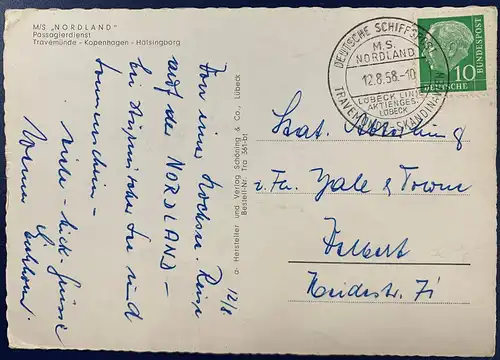 M/S „NORDLAND"
Passagierdienst
Travemünde - Kopenhagen - Hälsingborg
12/8
Von einer Reise
auf der NORDLAND -
bei See und
Sonnenschein -
viele Grüsse
a- Hersteller und Verlag Schöning & Co., Lübeck
Bestell-Nr. Tra 561-bt
DEUTSCHE SCHIFFSPOST
M.S.
NORDLAND
12.8.58.-10
LÜBECK LINIE
AKTIENGES.
LÜBECK
TRAVEMÜNDE - SKANDINAVIEN
10
DEUTSCHE BUNDESPOST
z. Fa. Yale & Towne
Velbert
Heidestr. 71